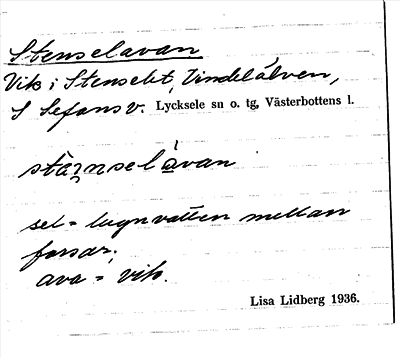 Stenselavan
Vik i Stenselet, Vindelälven,
S Sefans v. Lycksele sn o. tg, Västerbottens l.
stà̀n̥sel avan
sel = lugnvatten mellan
forsar;
ava = vik.
Lisa Lidberg 1936.